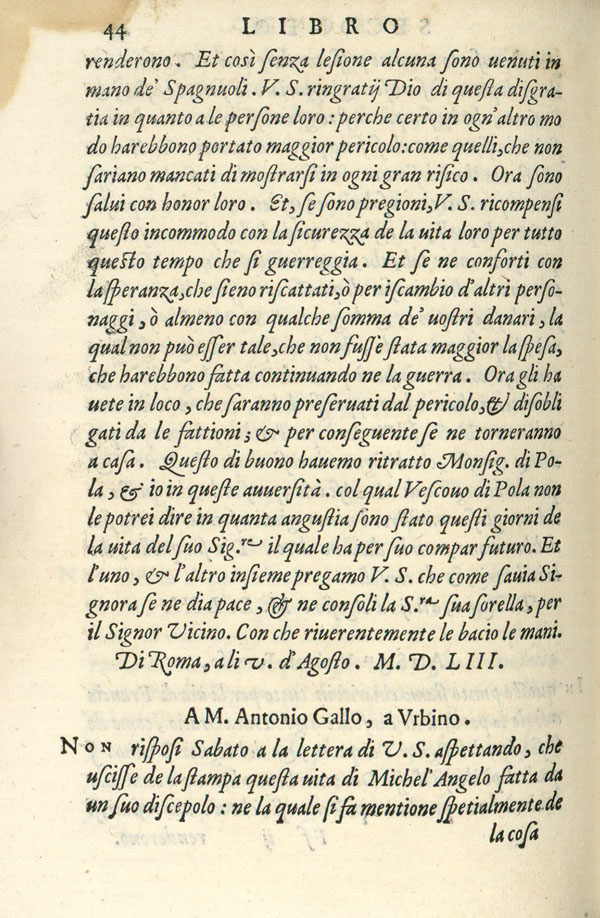 44 LIBRO
renderono. Et così senza lesione alcuna sono uenuti in
mano de' Spagnuoli. V. S. ringratij Dio di questa disgra-
tia in quanto a le persone loro: perche certo in ogn'altro mo
do harebbono portato maggior pericolo: come quelli, che non
sariano mancati di mostrarsi in ogni gran risico. Ora sono
salui con honor loro. Et, se sono pregioni, V. S. ricompensi
questo incommodo con la sicurezza de la uita loro per tutto
questo tempo che si guerreggia. Et se ne conforti con
la speranza, che sieno riscattati, ò per iscambio d'altri perso-
naggi, ò almeno con qualche somma de' uostri danari, la
qual non può esser tale, che non fusse stata maggior la spesa,
che harebbono fatta continuando ne la guerra. Ora gli ha
uete in loco, che saranno preseruati dal pericolo, & disobli
gati da le fattioni; & per conseguente se ne torneranno
a casa. Questo di buono hauemo ritratto Monsig. di Po-
la, & io in queste auuersità. col qual Vescouo di Pola non
le potrei dire in quanta angustia sono stato questi giorni de
la uita del suo Sig.re il quale ha per suo compar futuro. Et
l'uno, & l'altro insieme pregamo V. S. che come sauia Si-
gnora se ne dia pace, & ne consoli la S.ra sua sorella, per
il Signor Vicino. Con che riuerentemente le bacio le mani.
Di Roma, a li v. d'Agosto. M. D. LIII.
A M. Antonio Gallo, a Vrbino.
NON risposi Sabato a la lettera di V. S. aspettando, che
uscisse de la stampa questa uita di Michel'Angelo fatta da
un suo discepolo: ne la quale si fa mentione spetialmente de
la cosa